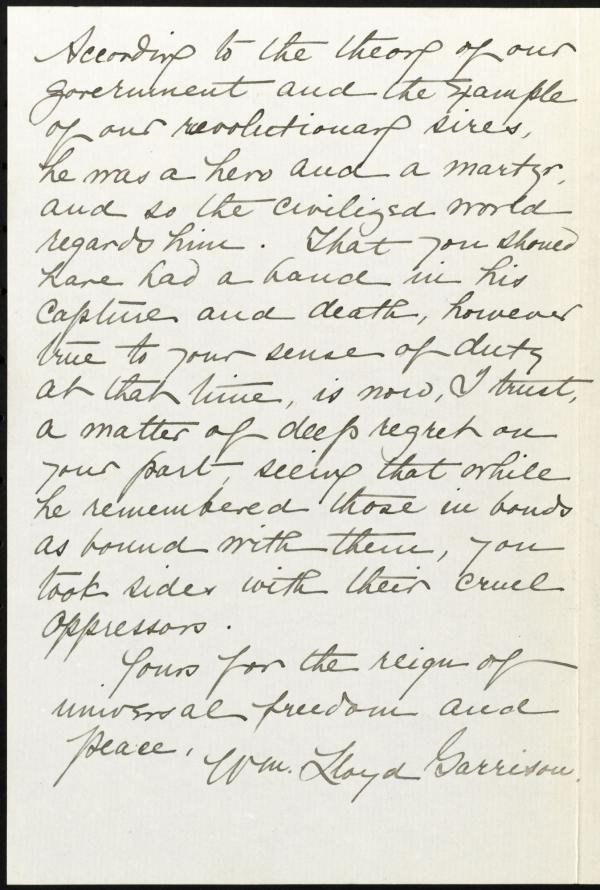 According to the theory of our
government and the example
of our revolutionary sires,
he was a hero and a martyr,
and so the civilized world
regards him. That you should
have had a hand in his
capture and death, however
true to your sense of duty
at that time, is now, I trust,
a matter of deep regret on
your part, seeing that while
he remembered those in bonds
as bound with them, you
took sides with their cruel
oppressors.
Yours for the reign of
universal freedom and
peace,
Wm. Lloyd Garrison.